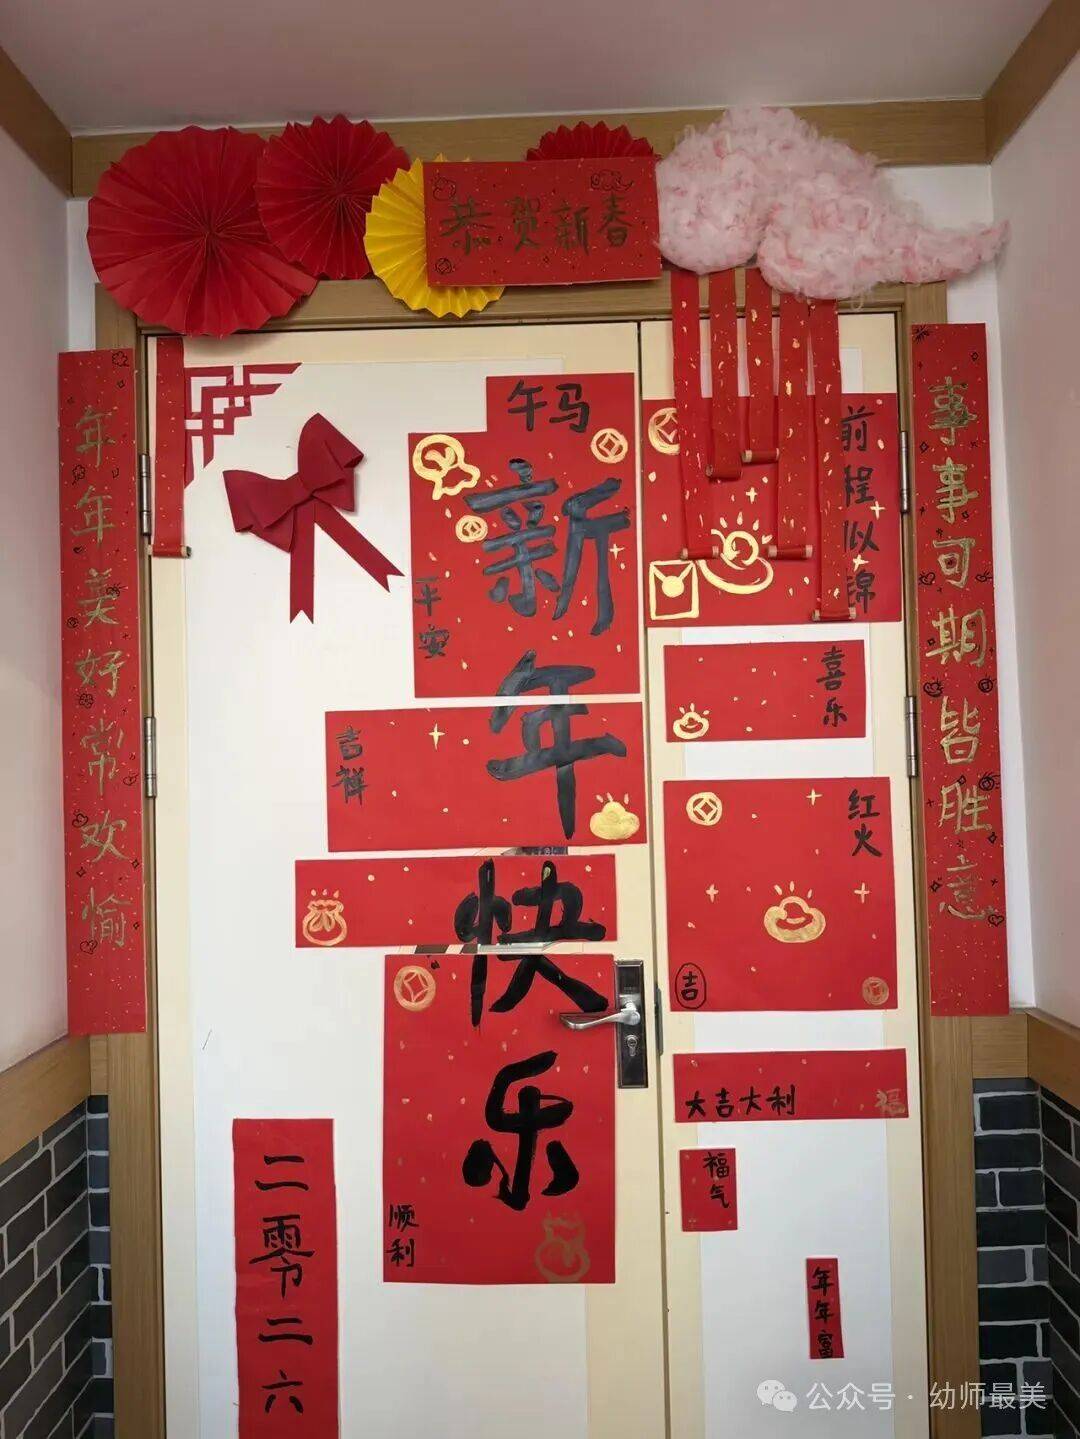 恭贺新春
年年美好常欢愉
事事可期皆胜意
午马
新年快乐
平安
吉祥
顺利
二零二六
前程似锦
喜乐
红火
吉
大吉大利
福
福气
年年富
公众号·幼师最美